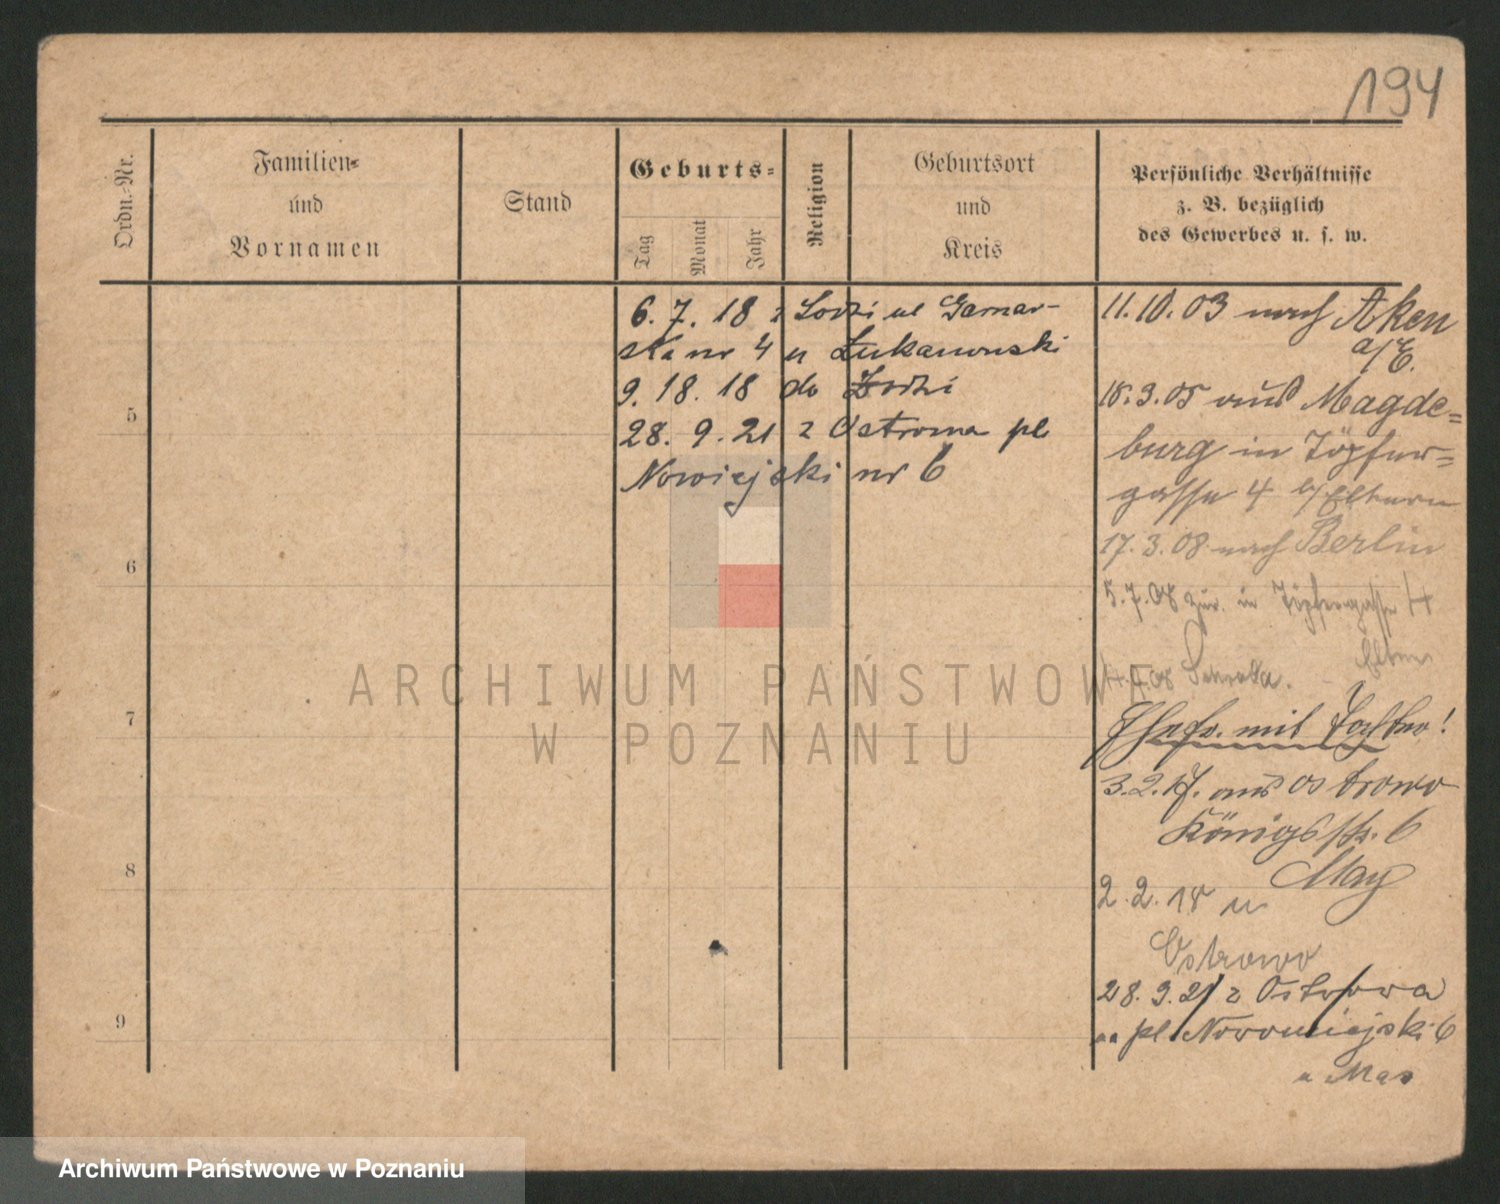 194
Ordn.-Nr.
Familien-
und
Vornamen
Stand
Geburts-
Tag
Monat
Jahr
Religion
Geburtsort
und
Kreis
Persönliche Verhältnisse
z. B. bezüglich
des Gewerbes u. s. w.
6. 7. 18 z Lodzi ul Garnar-
ska nr 4 u Łukanowski
9. 18. 18 do Łodzi
28. 9. 21 z Ostrowa pl
Nowiejski nr 6
5
6
7
8
9
11.10.03 nach Aken
a/E.
18.3.05 aus Magde-
burg in Töpfer-
gasse 4 b/Eltern
17.3.08 nach Berlin
5.7.08 zur. in Töpfergasse 4
Eltern
mit
3.2.17. aus Ostrowo
Königsstr. 6
May
2.2.18 n
Ostrowo
28.9.21 z Ostrowa
na pl Nowomiejski 6
u May
ARCHIWUM PAŃSTWOWE
W POZNANIU
Archiwum Państwowe w Poznaniu